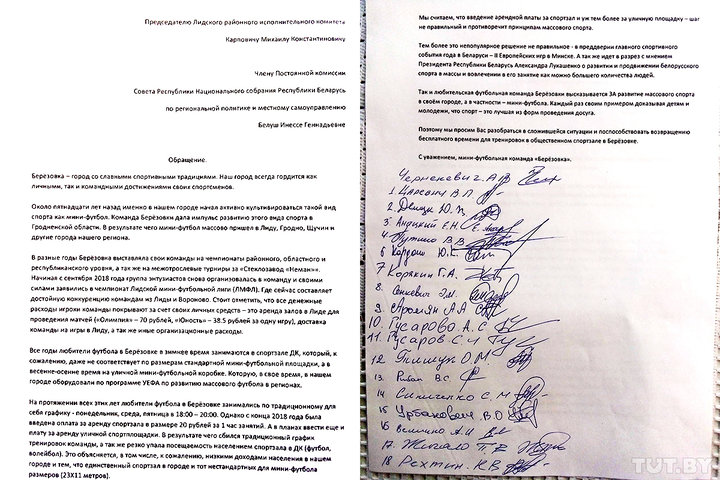 Председателю Лидского районного исполнительного комитета
Карповичу Михаилу Константиновичу
Члену Постоянной комиссии
Совета Республики Национального собрания Республики Беларусь
по региональной политике и местному самоуправлению
Белуш Инессе Геннадьевне
Обращение.
Берёзовка – город со славными спортивными традициями. Наш город всегда гордится как
личными, так и командными достижениями своих спортсменов.
Около пятнадцати лет назад именно в нашем городе начал активно культивироваться такой вид
спорта как мини-футбол. Команда Берёзовки дала импульс развитию этого вида спорта в
Гродненской области. В результате чего мини-футбол массово пришел в Лиду, Гродно, Щучин и
другие города нашего региона.
В разные годы Берёзовка выставляла свои команды на чемпионаты районного, областного и
республиканского уровня, а так же на межотраслевые турниры за «Стеклозавод «Неман»».
Начиная с сентября 2018 года группа энтузиастов снова организовалась в команду и своими
силами заявились в чемпионат Лидской мини-футбольной лиги (ЛМФЛ). Где сейчас составляет
достойную конкуренцию командам из Лиды и Вороново. Стоит отметить, что все денежные
расходы игрохи команды покрывают за счет своих личных средств – это аренда залов в Лиде для
проведения матчей («Олимпия» – 70 рублей, «Юность» – 38.5 рублей за одну игру), доставка
команды на игры в Лиду, а так же иные организационные расходы.
Все годы любители футбола в Берёзовке в зимнее время занимаются в спортзале ДК, который, к
сожалению, даже не соответствует по размерам стандартной мини-футбольной площадки, а в
весеннее-осенне время на уличной мини-футбольной коробке. Которую, в свое время, в нашем
городе оборудовали по программе УЕФА по развитию массового футбола в регионах.
На протяжении всех этих лет любители футбола в Берёзовке занимались по традиционному для
себя графику - понедельник, среда, пятница в 18:00 – 20:00. Однако с конца 2018 года была
введена оплата за аренду спортзала в размере 20 рублей за 1 час занятий. А в планах ввести еще и
плату за аренду уличной спортплощадки. В результате чего сбился традиционный график
тренировок команды, а так же резко упала посещаемость населением спортзала в ДК (футбол,
волейбол). Это объясняется, в том числе, к сожалению, низкими доходами населения в нашем
городе и тем, что единственный спортзал в городе и тот нестандартных для мини-футбола
размеров (23Х11 метров).
Мы считаем, что введение арендной платы за спортзал и уж тем более за уличную площадку – шаг
не правильный и противоречит принципам массового спорта.
Тем более это непопулярное решение не правильное - в преддверии главного спортивного
события года в Беларуси – II Европейских игр в Минске. А так же идет в разрез с мнением
Президента Республики Беларусь Александра Лукашенко о развитии и продвижении белорусского
спорта в массы и вовлечении в его занятие как можно большего количества людей.
Так и любительская футбольная команда Берёзовки высказывается ЗА развитие массового спорта
в своём городе, а в частности – мини-футбола. Каждый раз своим примером доказывая детям и
молодежи, что спорт – это лучшая из форм проведения досуга.
Поэтому мы просим Вас разобраться в сложившейся ситуации и поспособствовать возвращению
бесплатного времени для тренировок в общественном спортзале в Берёзовке.
С уважением, мини-футбольная команда «Берёзовка».
Черненевич А.В.
1.
2.
3
4 Путилко В.В.
6 Кардаш Ю.К.
7 Корякин Г.А.
8 Сенкевич Э.М.
9
10. Гусарово А.С
11. Гусаров С.Ч
12 Тимшук О.М
13 В.С.
14 С.М
15 Урбанович В.О
16 А.И
17. Жигало Т.Е
18 Рехтин К.В
TUT.BY